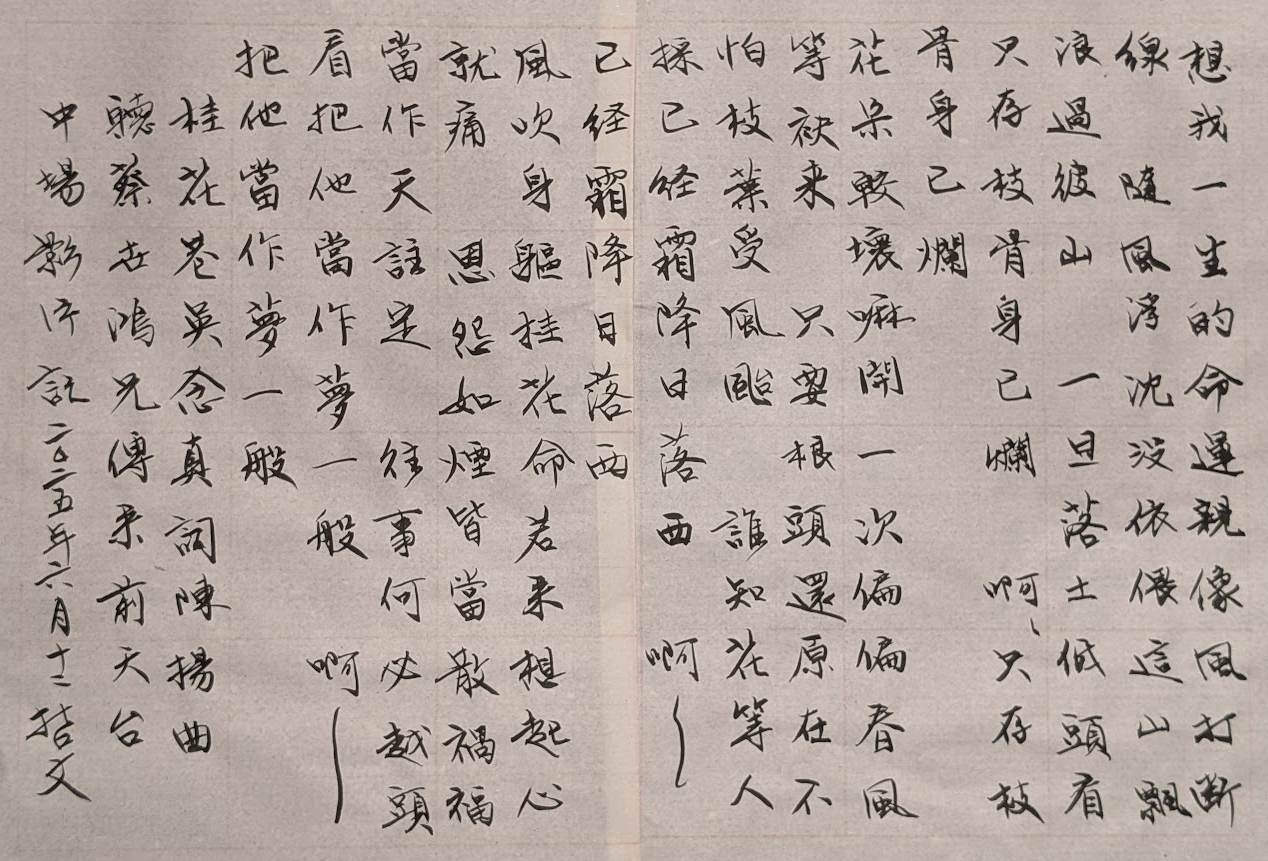 想我一生的命運親像風打斷
線 隨風浮沈沒依偎這山飄
浪過彼山 一旦落土低頭看
只存枝骨身已爛 啊、只存枝
骨身已爛
花朵較壞嘛開 一次偏偏春風
等袂来 只要根頭還原在不
怕枝葉受風颱 誰知花等人
採已経霜降日落西 啊〜
已経霜降日落西
風吹身軀桂花命若来想起心
就痛 恩怨如煙皆當散禍福
當作天註定 往事何必越頭
看把他當作夢一般 啊〜
把他當作夢一般
桂花巷吳念真詞陳揚曲
聽蔡世鴻兄傳来前天台
中場影片誌二〇二五年六月十二